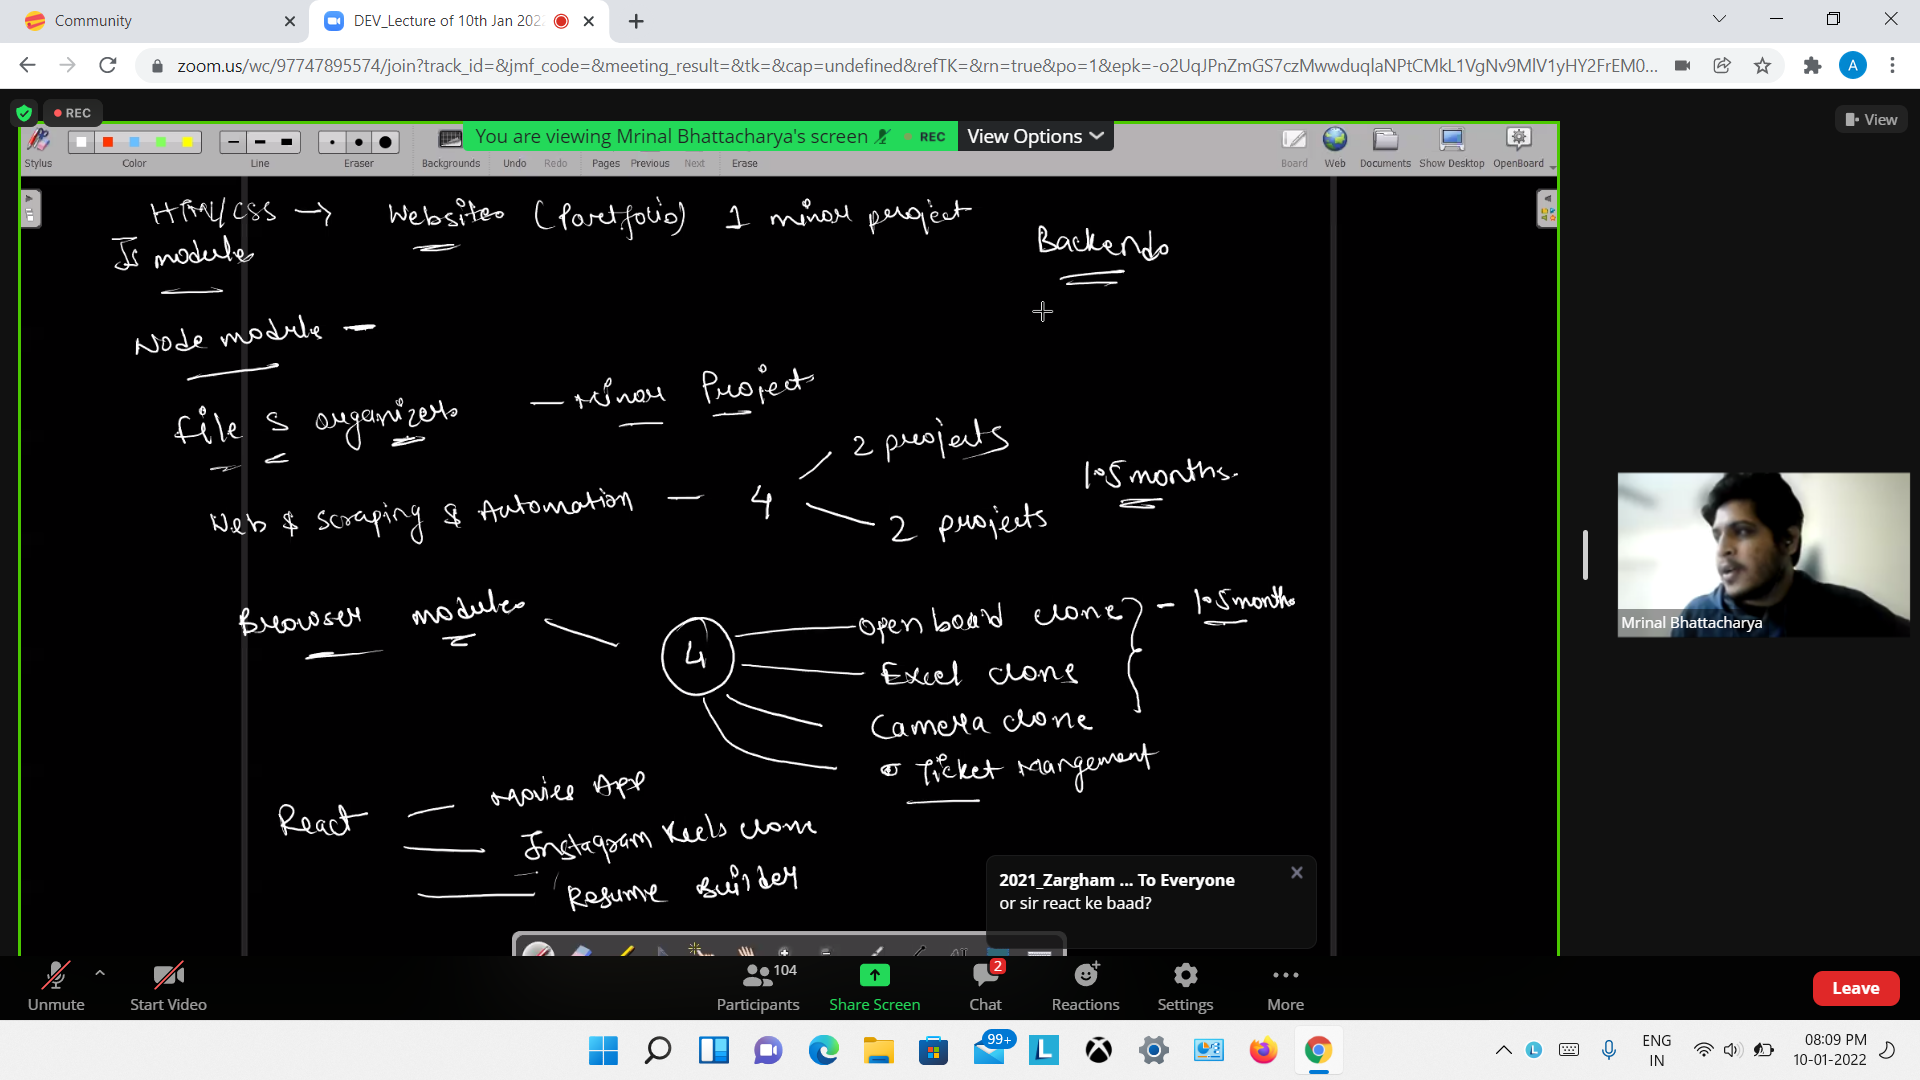 Community
DEV_Lecture of 10th Jan 202
zoom.us/wc/97747895574/join?track_id=&jmf_code=&meeting_result=&tk=&cap=undefined&refTK=&rn=true&po=1&epk=-o2UqJPnZmGS7czMwwduqlaNPtCMkL1VgNv9MlV1yHY2FrEM0...
A
REC
View
You are viewing Mrinal Bhattacharya's screen REC View Options
Stylus Color Line Eraser Backgrounds Undo Redo Pages Previous Next Erase Board Web Documents Show Desktop OpenBoard
HTML/CSS → Websites (Portfolio) 1 minor project
Js module
Backend
Node module -
File S organizer - Minor Project
Web & Scraping & Automation - 4
2 projects
2 projects
1.5 months.
Browser modules
4
Open board clone
Excel clone
Camera clone
Ticket Mangement
- 1.5 months
React
Movies App
Instagram Reels clone
Resume Builder
2021_Zargham ... To Everyone
or sir react ke baad?
Mrinal Bhattacharya
Unmute
Start Video
104
Participants
Share Screen
2
Chat
Reactions
Settings
More
Leave
99+
L
ENG
IN
08:09 PM
10-01-2022